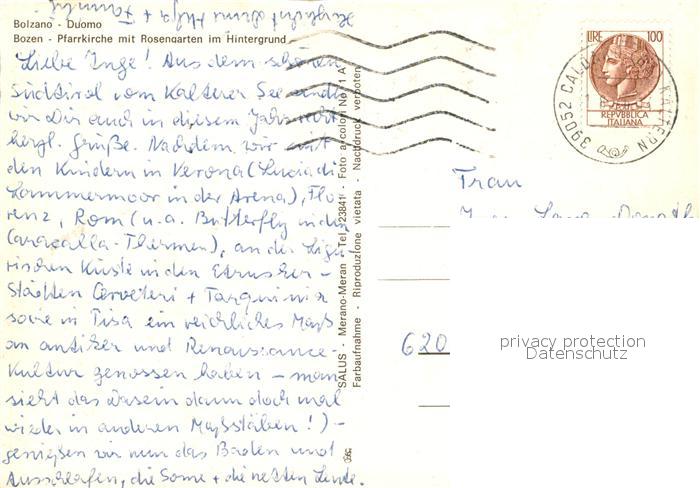 Herzlichst Deine Helga + Familie
Bolzano - Duomo
Bozen - Pfarrkirche mit Rosengarten im Hintergrund
Liebe Inge! Aus dem schönen
Südtirol vom Kalterer See senden
wir Dir auch in diesem Jahr recht
herzl. Grüße. Nachdem wir mit
den Kindern in Verona (Lucia di
Lammermoor in der Arena), Flo-
renz, Rom (u.a. Butterfly in den
Caracalla-Thermen), an der Ligu-
rischen Küste in den Etrusker-
Städten Cerveteri + Tarquinia
sowie in Pisa ein reichliches Maß
an antiker und Renaissance-
Kultur genossen haben - man
sieht das Dasein dann doch mal
wieder in anderen Maßstäben!) -
genießen wir nun das Baden und
Ausschlafen, die Sonne + die netten Leute.
SALUS - Merano-Meran - Tel. 23841 - Foto a colori No. 1 A
Farbaufnahme - Riproduzione vietata - Nachdruck verboten
LIRE 100
REPVBBLICA
ITALIANA
39052 CALDARO KALTERN
Frau
620
privacy protection
Datenschutz